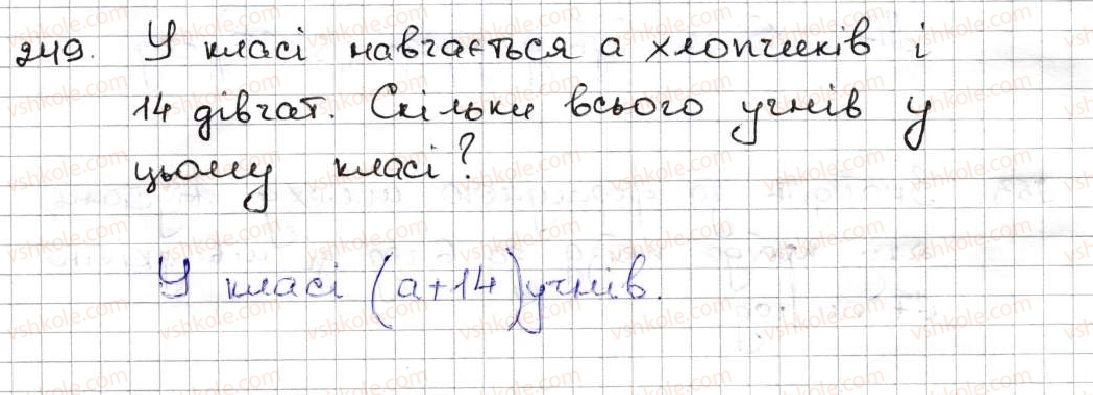 249. У класі навчається а хлопчиків і
14 дівчат. Скільки всього учнів у
цьому класі?
У класі (а+14) учнів.